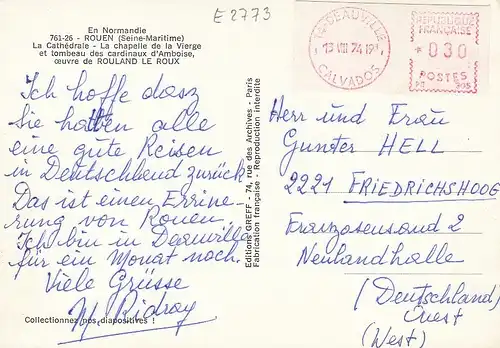 En Normandie
761-26 - ROUEN (Seine-Maritime)
La Cathédrale - La chapelle de la Vierge
et tombeau des cardinaux d'Amboise,
œuvre de ROULAND LE ROUX
E 2773
14 DEAUVILLE
13 VIII 74 19H
CALVADOS
REPUBLIQUE
FRANÇAISE
030
POSTES
Ich hoffe dasz
Sie hatten alle
eine gute Reisen
in Deutschlend zurück
Das ist einen Errine-
rung von Rouen.
Ich bin in Deauville
für ein Monat noch.
Viele Grüsse
Collectionnez nos diapositives !
Editions GREFF - 74, rue des Archives - Paris
Fabrication française - Reproduction interdite
Herr und Frau
Gunster HELL
2221 FRIEDRICHSHOOG
Franzosensand 2
Neulandhalle
(Deutschland)
Ouest
(West)